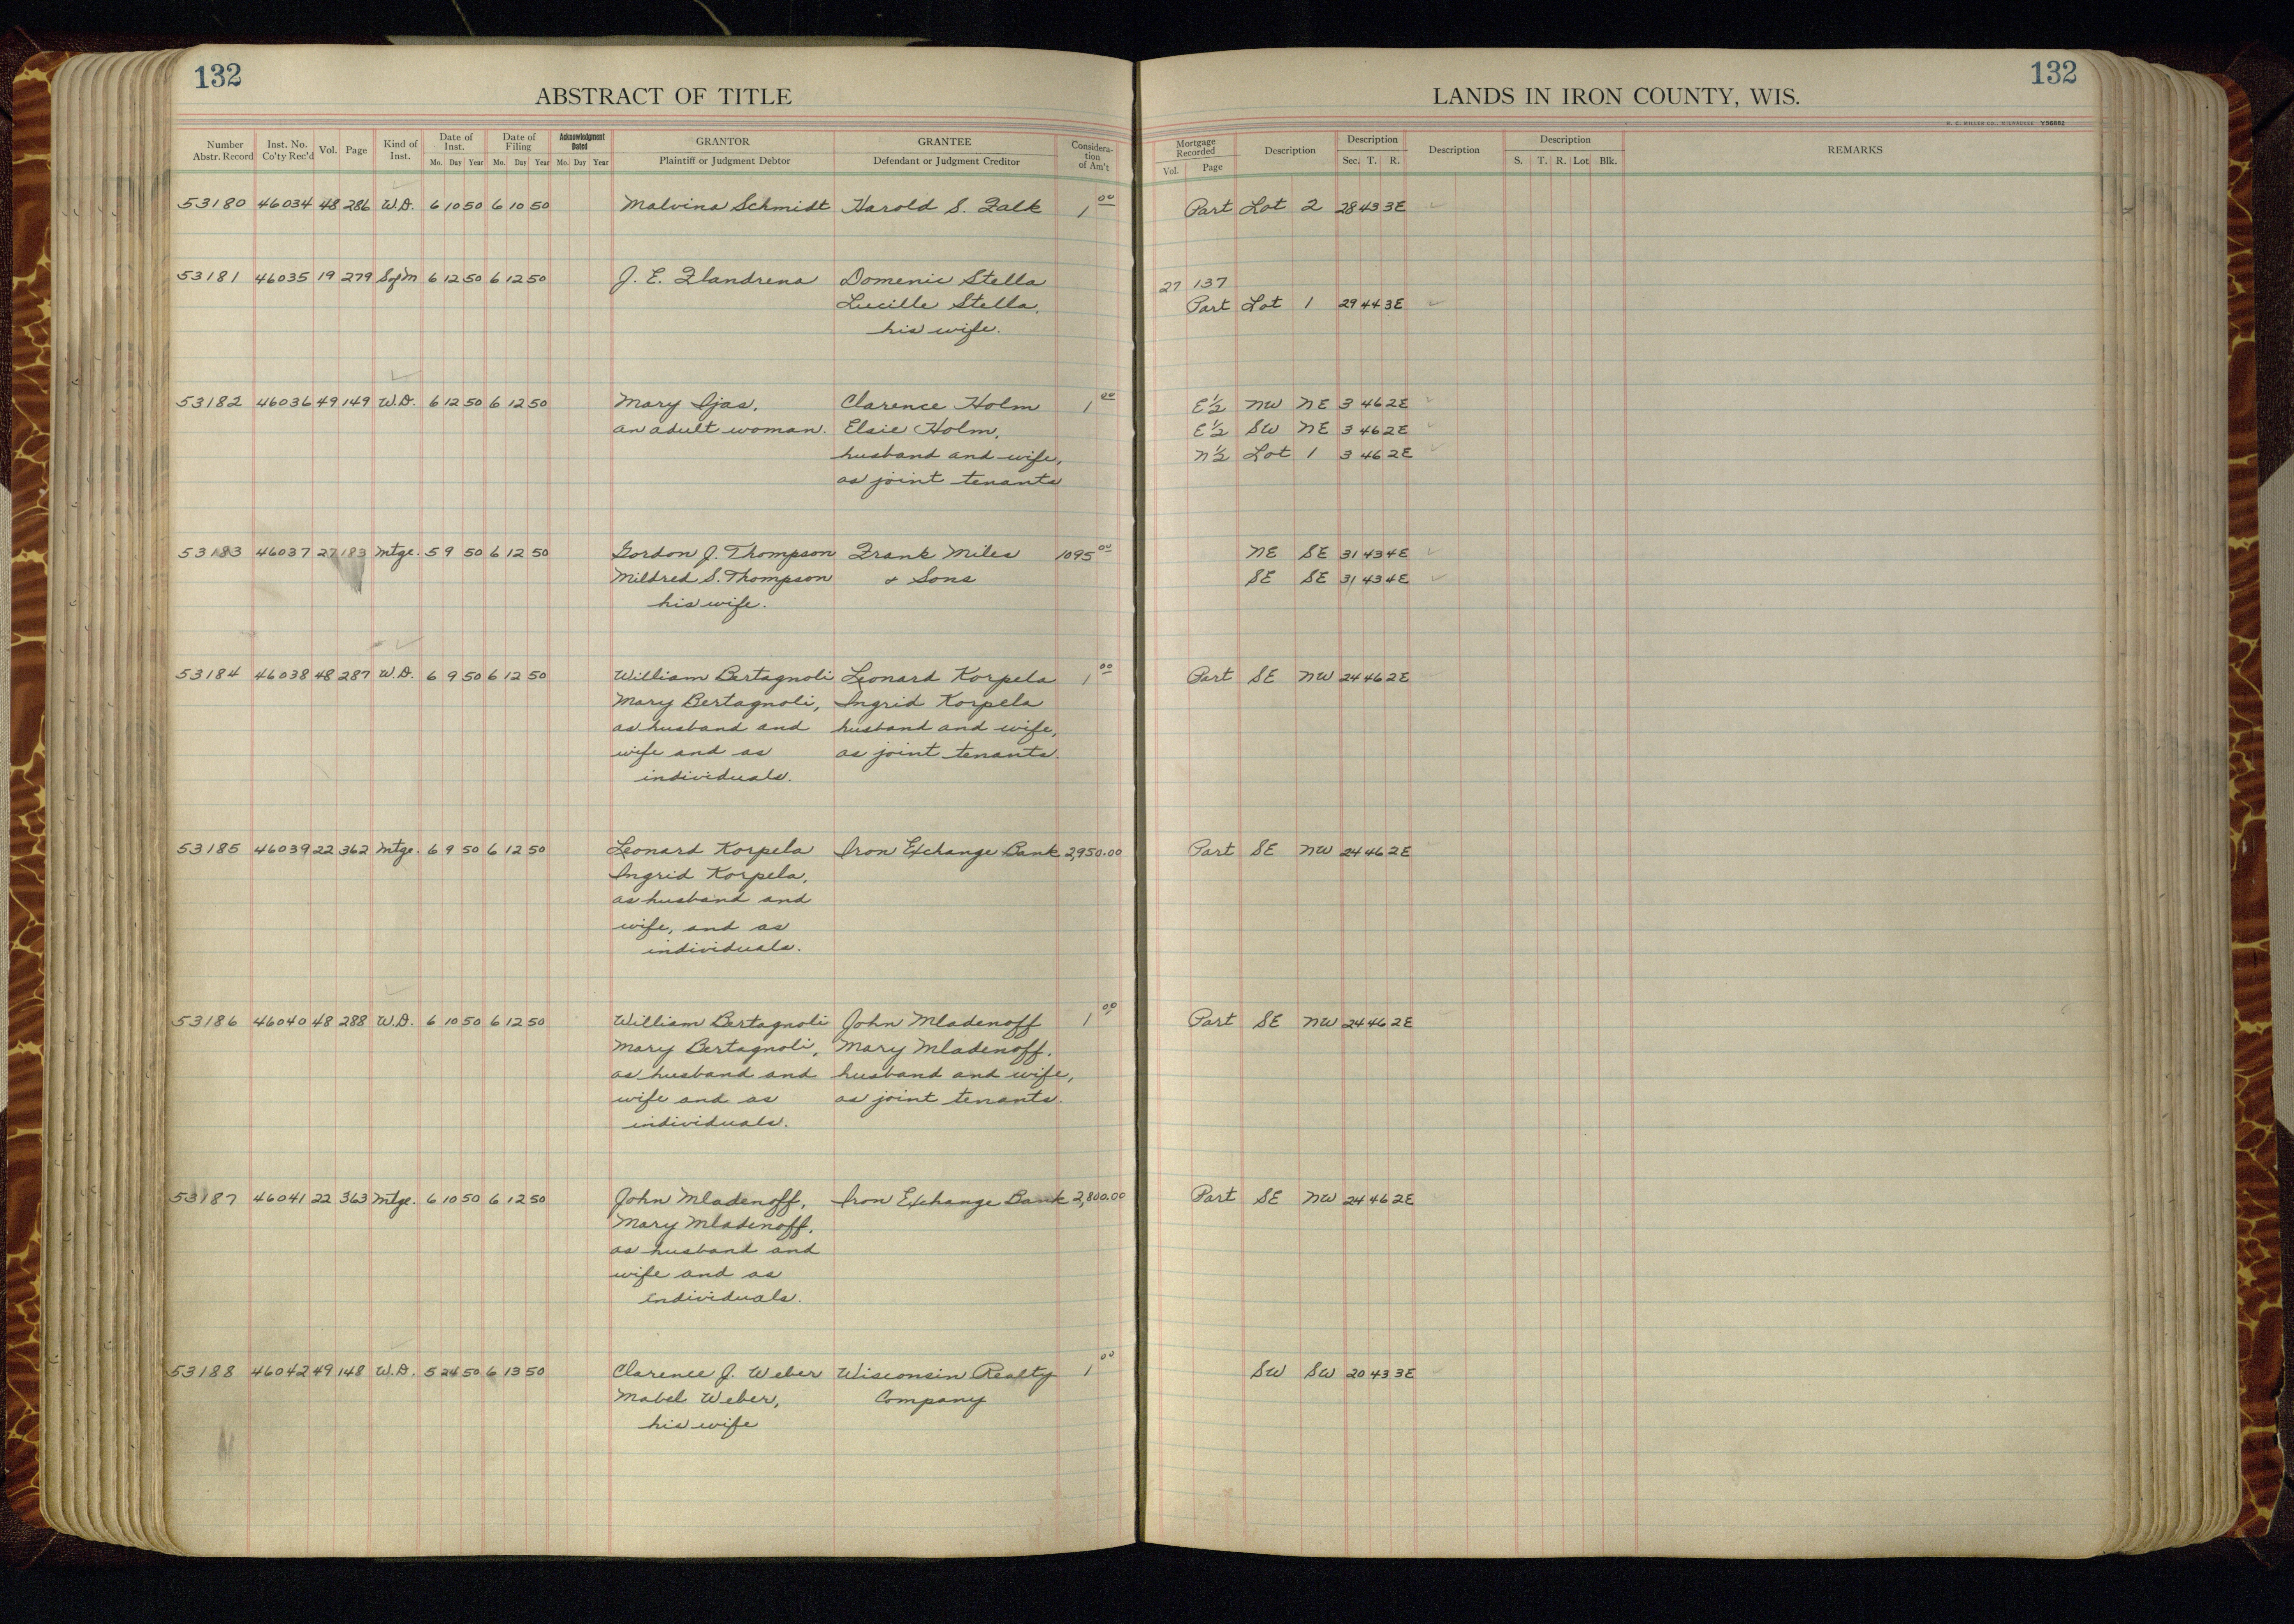 132
ABSTRACT OF TITLE
Number Abstr. Record | Inst. No. Co'ty Rec'd | Vol. | Page | Kind of Inst. | Date of Inst. Mo. Day Year | Date of Filing Mo. Day Year | Acknowledgment Dated Mo. Day Year | GRANTOR Plaintiff or Judgment Debtor | GRANTEE Defendant or Judgment Creditor | Consideration of Am't
53180 46034 48 286 W.D. 6 10 50 6 10 50 Malvina Schmidt Harold S. Falk 1 00
53181 46035 19 279 SofM 6 12 50 6 12 50 J. E. Flandrena Domenic Stella
Lucille Stella,
his wife.
53182 46036 49 149 W.D. 6 12 50 6 12 50 Mary Ojas, Clarence Holm 1 00
an adult woman. Elsie Holm,
husband and wife,
as joint tenants
53183 46037 27 183 Mtge. 5 9 50 6 12 50 Gordon J. Thompson Frank Miles 1095 00
Mildred S. Thompson & Sons
his wife.
53184 46038 48 287 W.D. 6 9 50 6 12 50 William Bertagnoli Leonard Korpela 1 00
Mary Bertagnoli, Ingrid Korpela
as husband and husband and wife,
wife and as as joint tenants.
individuals.
53185 46039 22 362 Mtge. 6 9 50 6 12 50 Leonard Korpela Iron Exchange Bank 2,950.00
Ingrid Korpela,
as husband and
wife, and as
individuals.
53186 46040 48 288 W.D. 6 10 50 6 12 50 William Bertagnoli John Mladenoff 1 00
Mary Bertagnoli, Mary Mladenoff,
as husband and husband and wife,
wife and as as joint tenants.
individuals.
53187 46041 22 363 Mtge. 6 10 50 6 12 50 John Mladenoff, Iron Exchange Bank 2,800.00
Mary Mladenoff,
as husband and
wife and as
individuals.
53188 46042 49 148 W.D. 5 24 50 6 13 50 Clarence J. Weber Wisconsin Realty 1 00
Mabel Weber, Company
his wife
132
LANDS IN IRON COUNTY, WIS.
H. C. MILLER CO., MILWAUKEE Y56682
Mortgage Recorded Vol. Page | Description | Description Sec. T. R. | Description | Description S. T. R. Lot Blk. | REMARKS
Part Lot 2 28 43 3E
27 137
Part Lot 1 29 44 3E
E½ NW NE 3 46 2E
E½ SW NE 3 46 2E
N½ Lot 1 3 46 2E
NE SE 31 43 4E
SE SE 31 43 4E
Part SE NW 24 46 2E
Part SE NW 24 46 2E
Part SE NW 24 46 2E
Part SE NW 24 46 2E
SW SW 20 43 3E